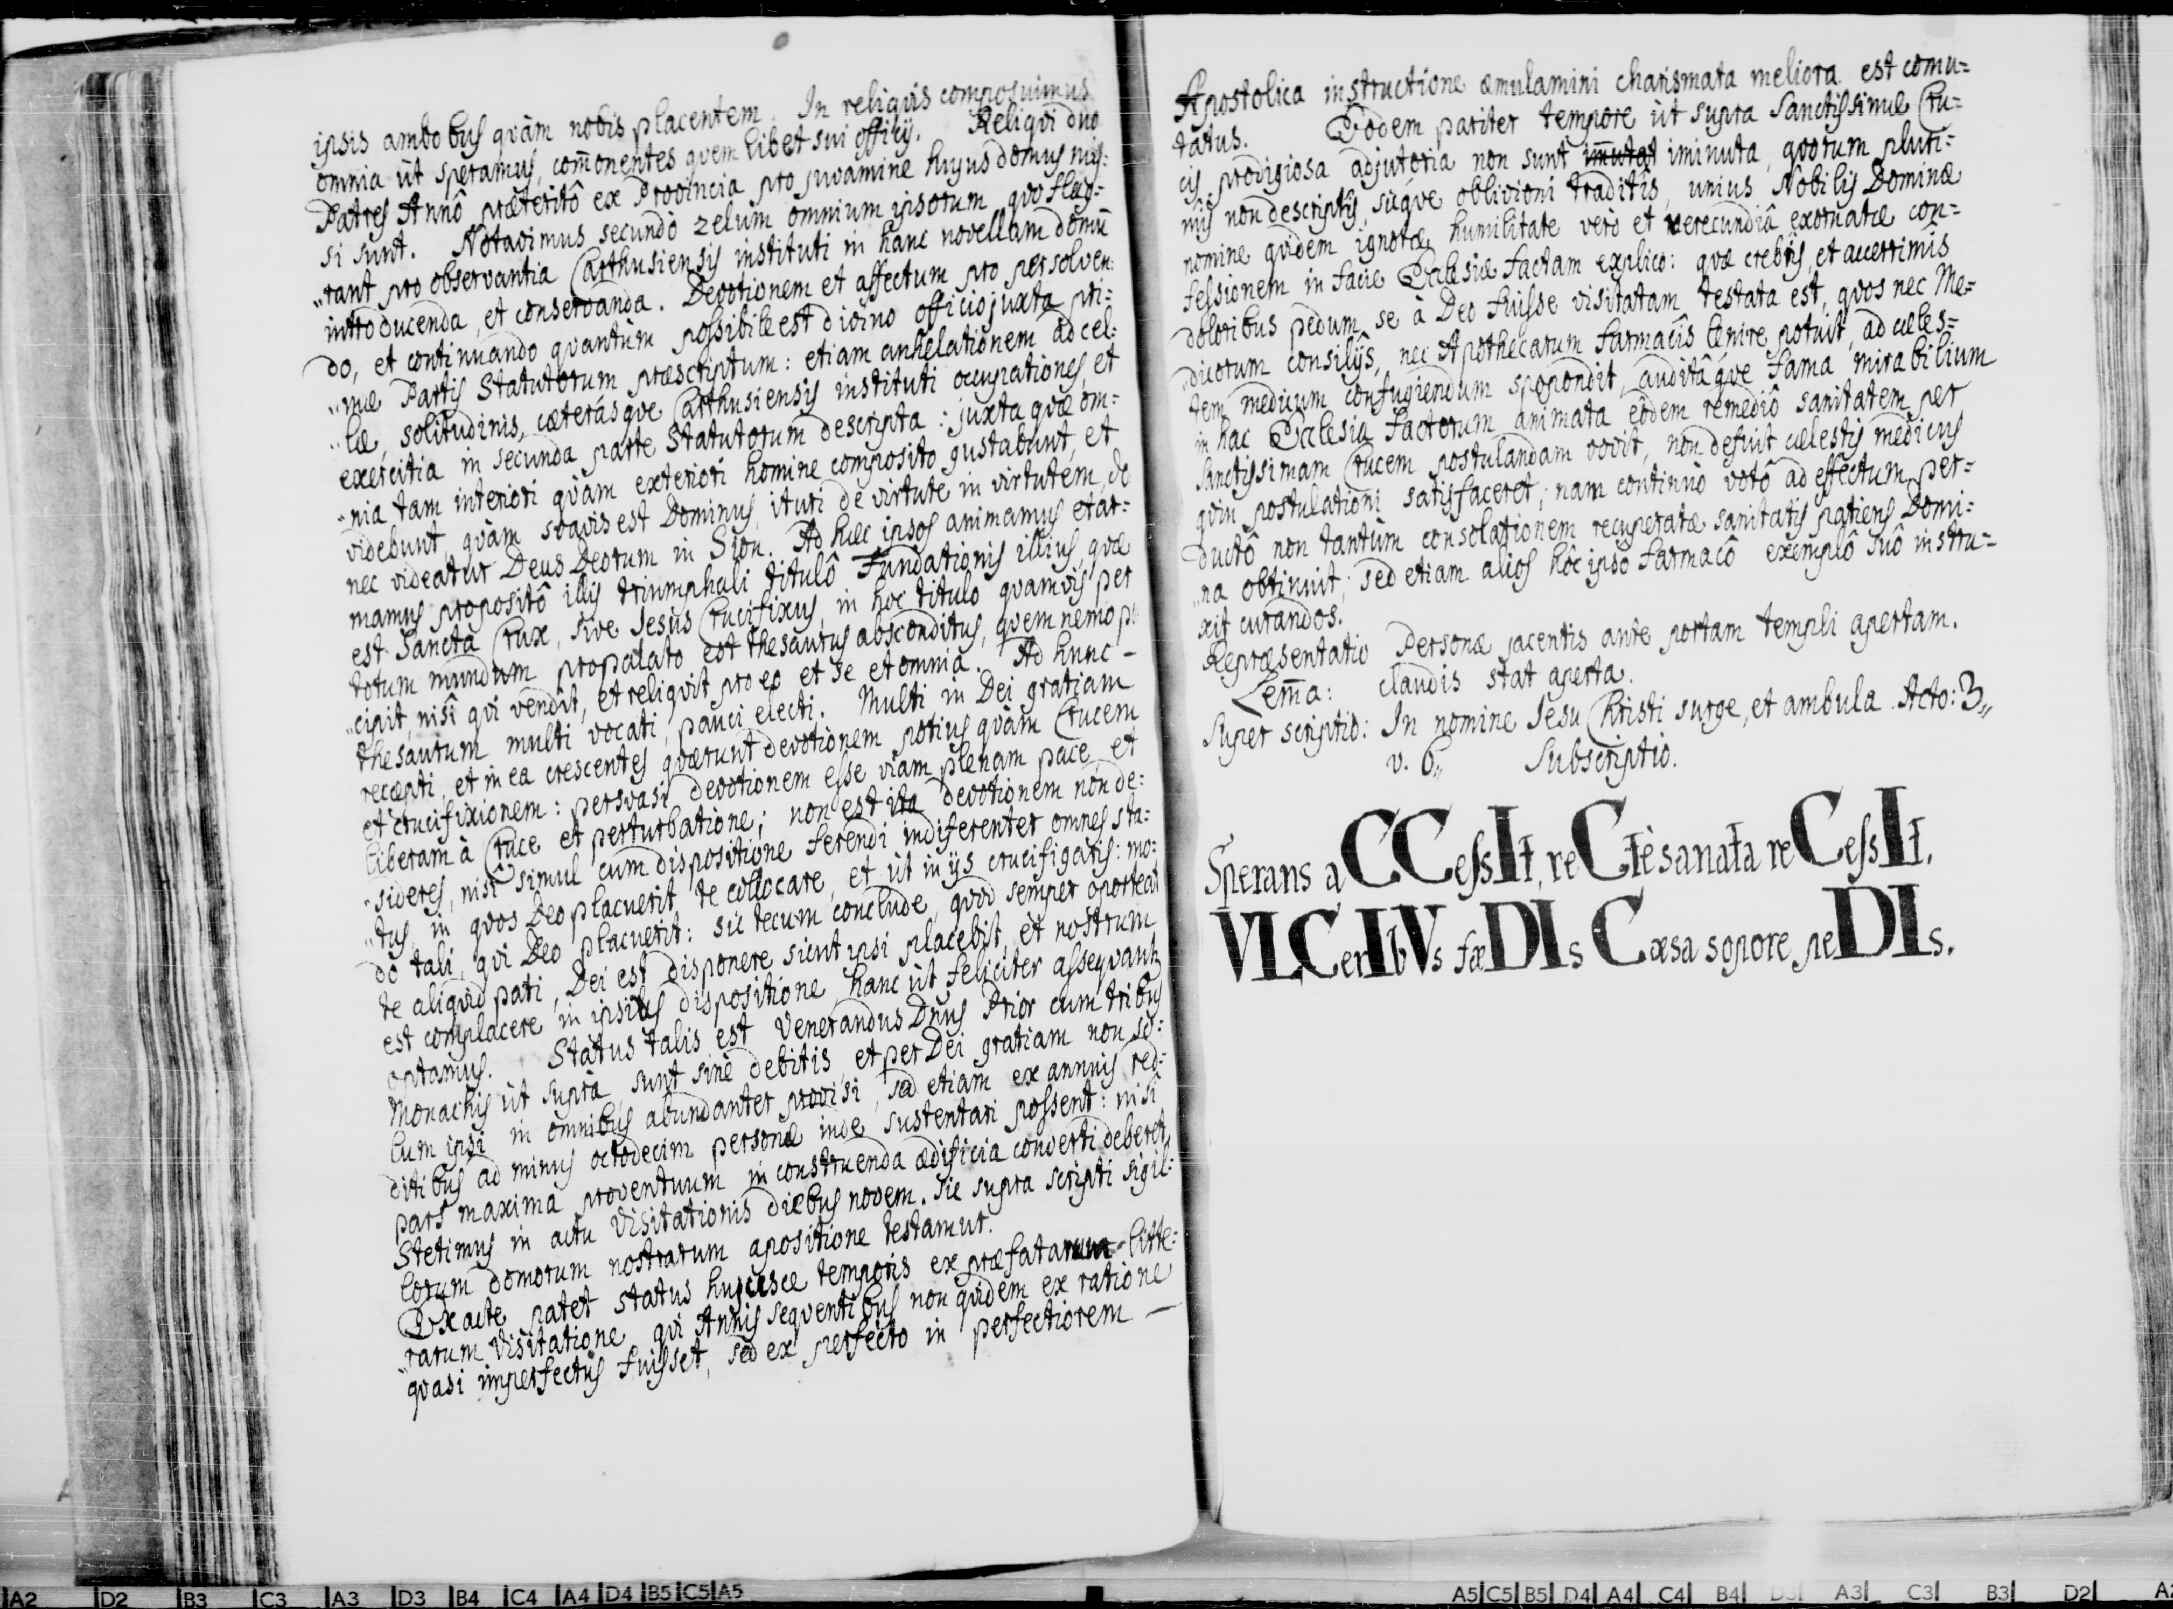 ipsis ambobus quàm nobis placentem. In reliquis composuimus
omnia ut speramus, com̃onentes quemlibet sui offitij. Reliqui duo
Patres Annô præteritô ex Provincia pro juvamine hujus domus mis:
si sunt. Notavimus secundò zelum omnium ipsorum, quo flag:
"rant pro observantia Carthusiensis instituti in hanc novellam domũ
introducenda, et conservanda. Devotionem et affectum pro persolven:
do, et continuando quantùm possibile est divino officio juxta pri:
"mæ Partis Statutorum præscriptum: etiam anhelationem ad cel:
"læ, solitudinis, cæterásque Carthusiensis instituti occupationes, et
exercitia in secunda parte Statutorum descripta: juxta quæ om:
"nia tam interiori quàm exteriori homine composito gustabunt, et
videbunt, quàm suavis est Dominus, ituri de virtute in virtutem, do
nec videatur Deus Deorum in Sion. Ad hæc ipsos animamus et ar:
mamus propositô illis triumphali titulô Fundationis illius, quæ
est Sancta Crux, sive Jesus Crucifixus, in hoc titulo quamvis per
totum mundum propalato est thesaurus absconditus, quem nemo p
"cipit, nisi qui vendit, et reliquit pro eo et se et omnia. Ad hunc -
thesaurum multi vocati, pauci electi. Multi in Dei gratiam
recepti, et in ea crescentes quærunt devotionem potius quàm Crucem
et crucifixionem: persuasi devotionem esse viam plenam pace, et
liberam à Cruce et perturbatione; non est ita devotionem non de:
"sideres, nisi simul cum dispositione ferendi indiferenter omnes sta:
"tus in quos Deo placuerit te collocare, et ut in ijs crucifigaris: mo:
do tali, qui Deo placuerit: sic tecum conclude, quod semper oporteat
te aliquid pati, Dei est disponere sicut ipsi placebit, et nostrum
est complacere in ipsius dispositione, hanc ut feliciter assequant
optamus. Status talis est Venerandus Dñus Prior cum tribus
Monachis ut supra, sunt sinè debitis, et per Dei gratiam non so:
lum ipsi in omnibus abundanter provisi, sed etiam ex annuis red:
ditibus ad minus octodecim personæ inde sustentari possent: nisi
pars maxima proventuum in construenda ædificia converti deberet.
Stetimus in actu Visitationis diebus novem. Sic supra scripti sigil:
lorum domorum nostrarum apositione testamur.
Exacte patet status hujusce temporis ex præfatarum litte:
"rarum Visitatione, qui Annis sequentibus non quidem ex ratione
quasi imperfectus fuisset, sed ex perfecto in perfectiorem —
Apostolica instructione æmulamini charismata meliora est comu=
tatus. Eodem pariter tempore ut supra Sanctissimæ Cru=
cis prodigiosa adjutoria non sunt im̃utat iminuta, quorum pluri=
mis non descriptis, sicque oblivioni traditis, unius Nobilis Dominæ
nomine quidem ignotæ, humilitate verò et verecundiâ exornatæ con=
fessionem in facie Ecclesiæ factam explico: quæ crebris, et acerrimis
doloribus pedum se à Deo fuisse visitatam testata est, quos nec Me=
"dicorum consilijs, nec Apothecarum farmacis lenire potuit, ad cæles=
tem medicum confugiendum spopondit, auditâque fama mirabilium
in hac Ecclesia factorum animata eodem remediô sanitatem per
Sanctissimam Crucem postulandam vovit, non defuit cælestis medicus
quin postulationi satisfaceret; nam continuò votô ad effectum per=
ductô non tantùm consolationem recuperatæ sanitatis patiens Domi=
"na obtinuit; sed etiam alios hôc ipsô farmacô exemplô suô instru=
xit curandos.
Repræsentatio Personæ jacentis ante portam templi apertam.
Lem̃a: claudis stat aperta.
Super scriptio: In nomine Jesu Christi surge, et ambula. Acto: 3,,
v. 6,, Subscriptio.
Sperans aCCessIt, reCtè sanata reCessIt.
VLCerIbVs fæDIs Cæsa sopore peDIs.
A2 D2 B3 C3 A3 D3 B4 C4 A4 D4 B5 C5 A5
A5 C5 B5 D4 A4 C4 B4 D3 A3 C3 B3 D2 A2